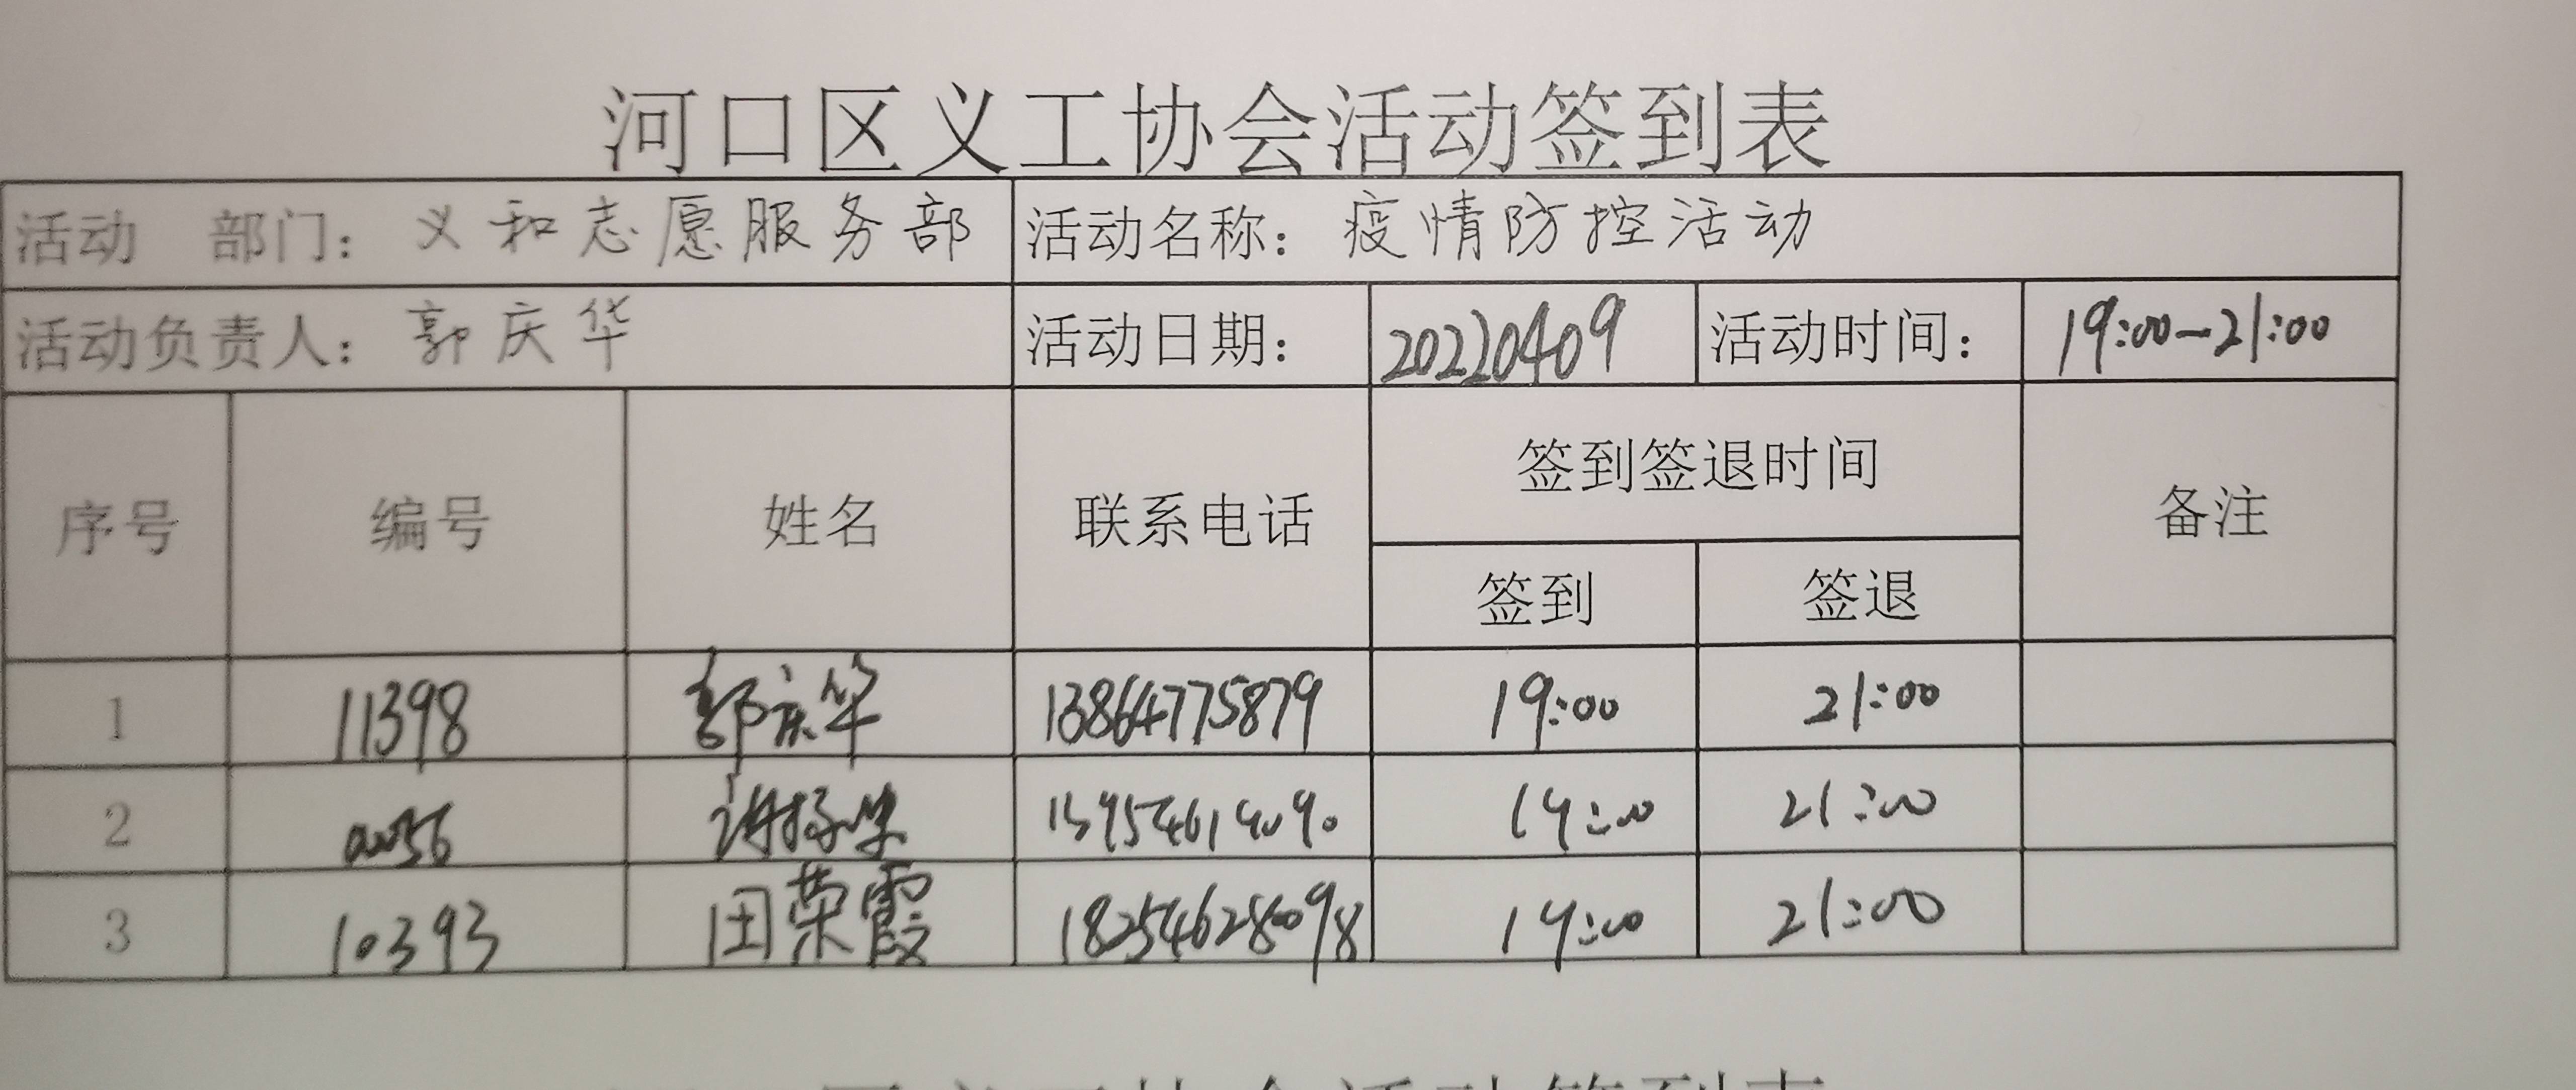 河口区义工协会活动签到表
活动 部门：义和志愿服务部 活动名称：疫情防控活动
活动负责人：郭庆华 活动日期： 20220409 活动时间： 19:00-21:00
序号 编号 姓名 联系电话 签到签退时间 备注
签到 签退
1 11398 郭庆华 13864775879 19:00 21:00
2 21:00
3 10393 田荣霞 18254628098 19:00 21:00